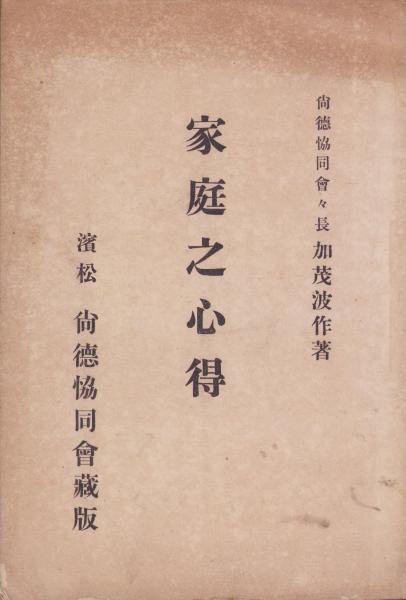 尙德協同會々長 加茂波作著
家庭之心得
濱松 尙德協同會藏版